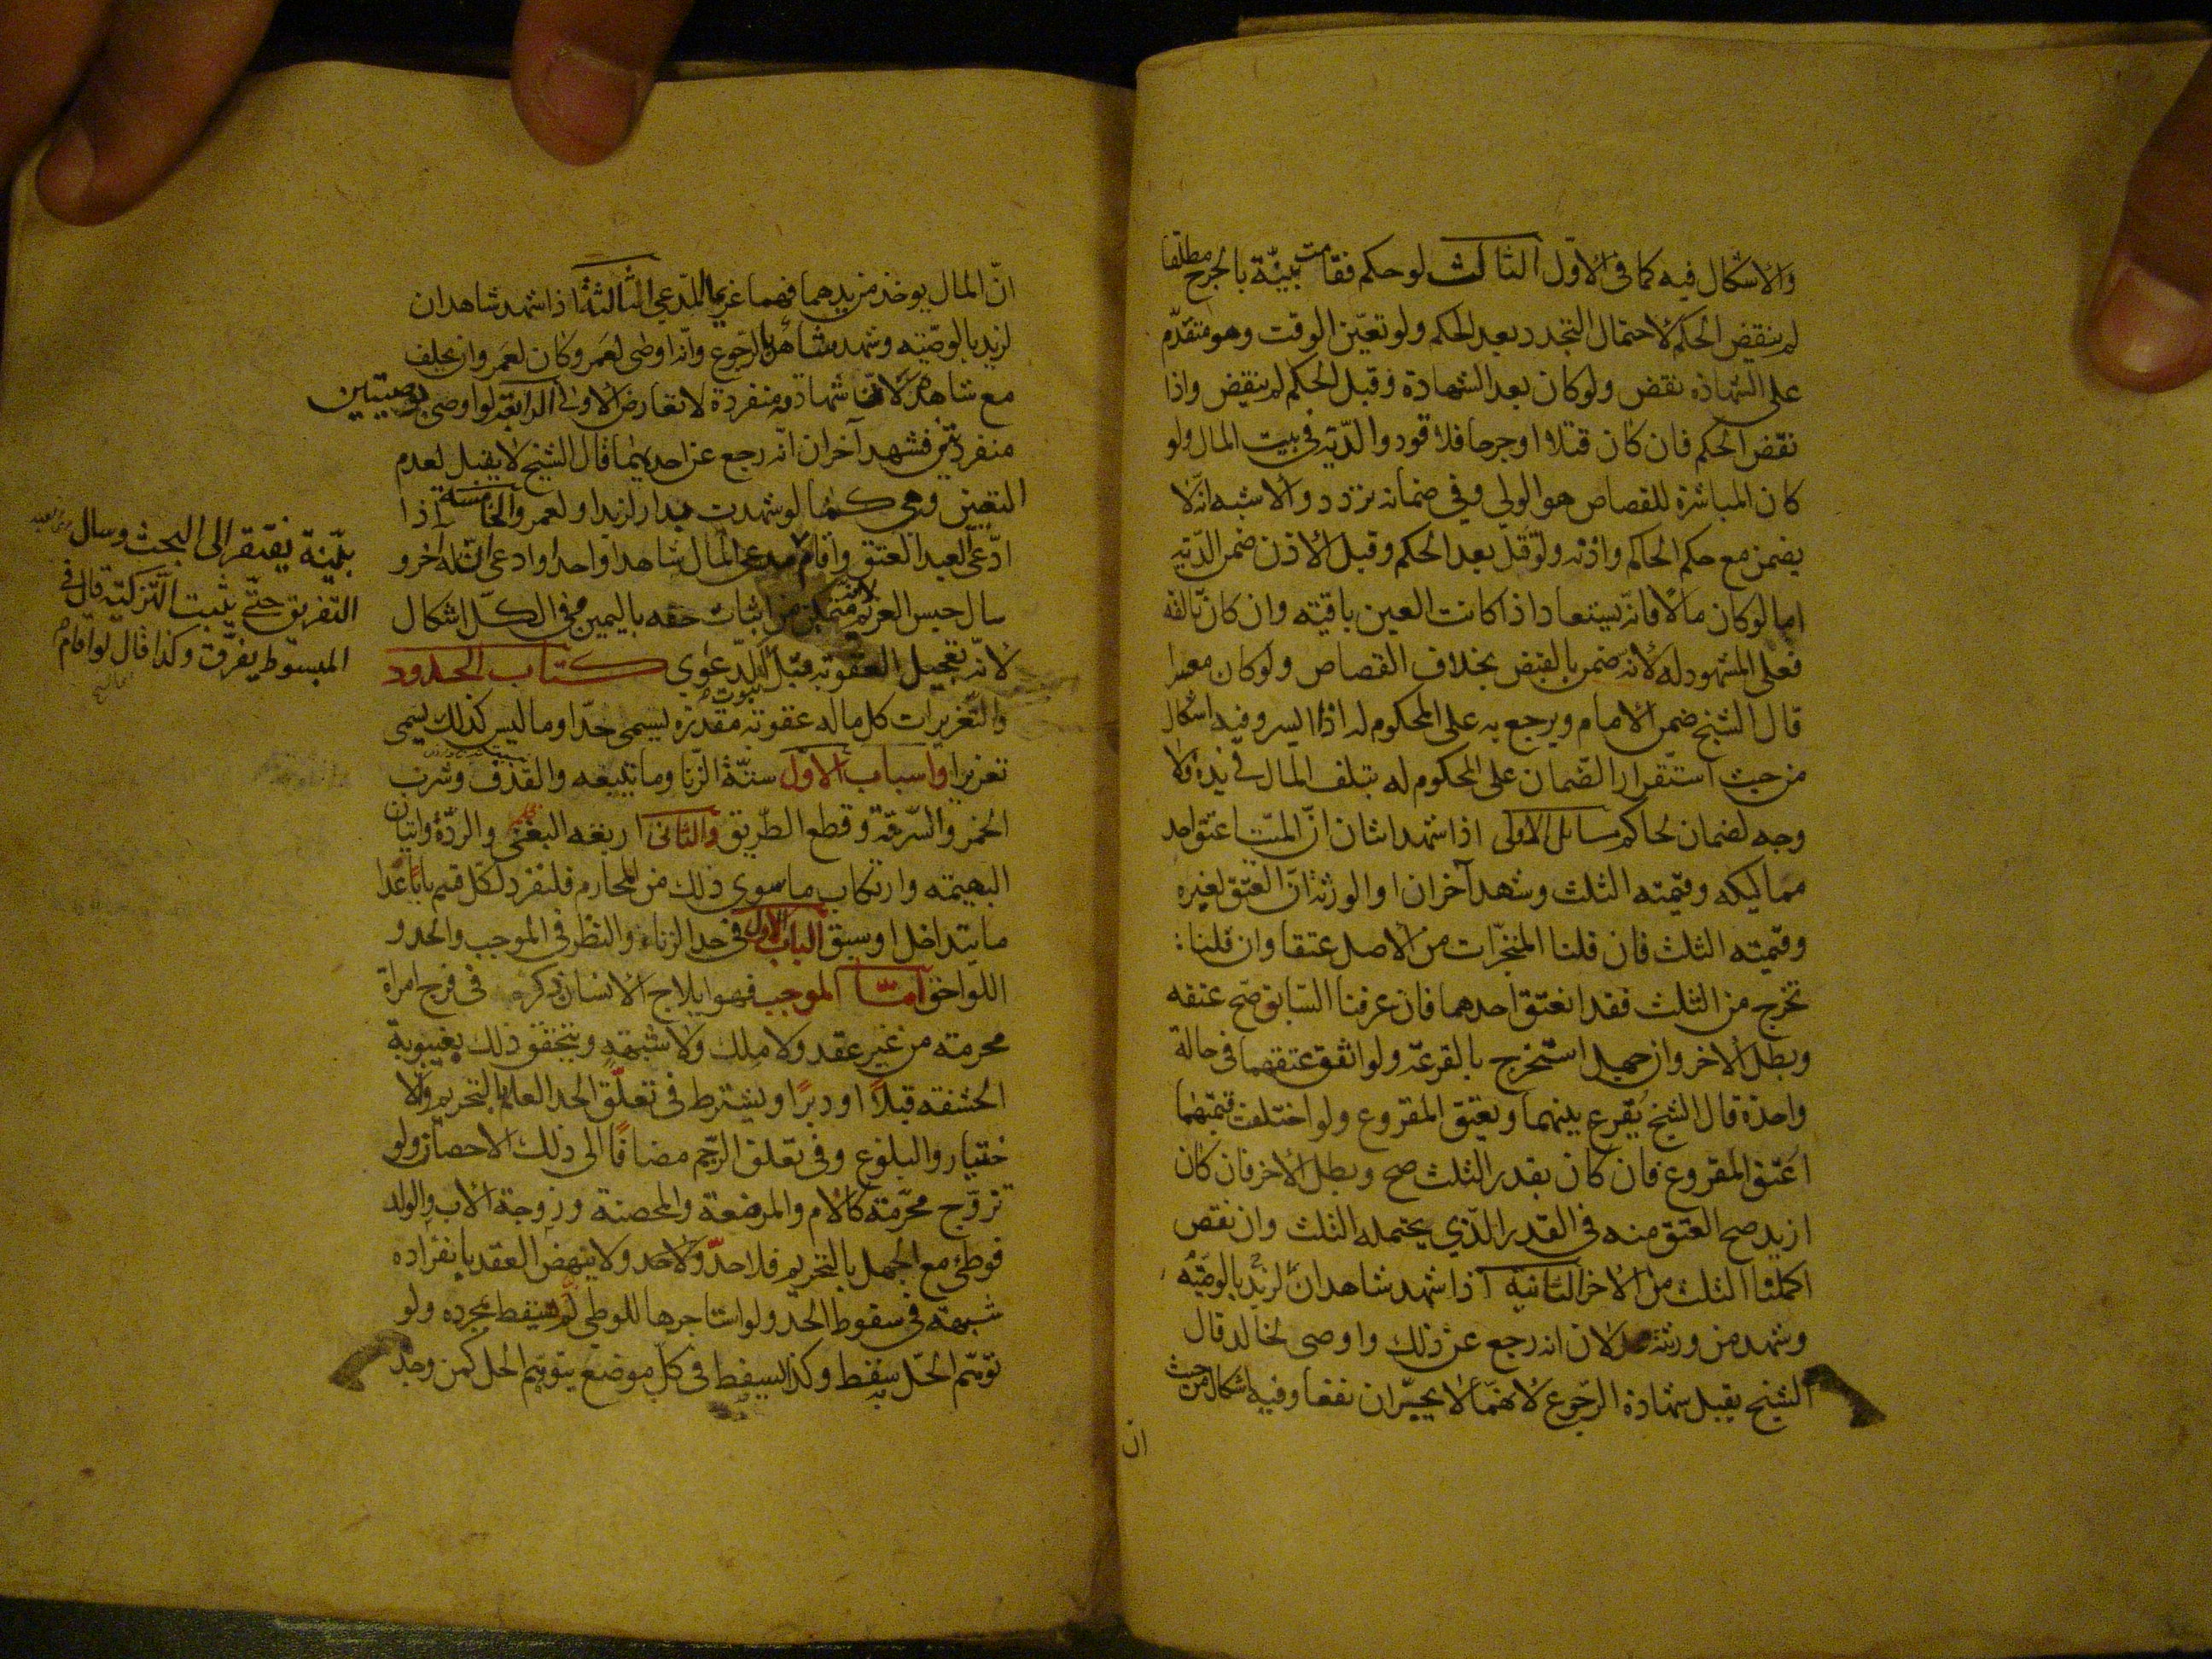 والاشكال فيه كما فى الاول الثالث لو حكم فقامت بينّة بالجرح مطلقا
لم ينقض الحكم لاحتمال التجدد بعد الحكم ولو تعيّن الوقت وهو متقدّم
على الشهادة نقض ولو كان بعد الشهادة وقبل الحكم لم ينقض واذا
نقض الحكم فان كان قتلا او جرحا فلا قود والدّية فى بيت المال ولو
كان المباشرة للقصاص هو الولي وفي ضمانه تردد والاشبه انّه لا
يضمن مع حكم الحاكم واذنه ولو قتل بعد الحكم وقبل الاذن ضمن الدّية
اما لو كان مالا فانّه يستعاد اذا كانت العين باقية وان كان تالفه
فعلى المشهود له لانّه ضمن بالقبض بخلاف القصاص ولو كان معسرا
قال الشيخ ضمن الامام ويرجع به على المحكوم له اذا ايسر وفيه اشكال
من حيث استقرار الضّمان على المحكوم له بتلف المال في يده ولا
وجه لضمان لحاكم مسائل الاولى اذا شهد اثنان انّ الميّت اعتق احد
مماليكه وقيمته الثلث وشهد آخران او الورثة انّ العتق لغيره
وقيمته الثلث فان قلنا المنجّزات من الاصل عتقا وان قلنا
تخرج من الثلث فقد انعتق احدهما فان عرفنا السّابق صّح عتقه
وبطل الاخر وان جهل استخرج بالقرعة ولو اتّفق عتقهما في حالة
واحدة قال الشيخ يقرع بينهما ويعتق المقروع ولو اختلفت قيمتهما
اعتق المقروع فان كان بقدر الثلث صح وبطل الاخر فان كان
ازيد صح العتق منه في القدر الّذي يحتمله الثلث وان نقص
اكملنا الثلث من الاخر الثانية اذا شهد شاهدان لزيد بالوصيّة
وشهد من ورثته عدلان انه رجع عن ذلك واوصى لخالد قال
الشيخ يقبل شهادة الرجوع لانهمّا لا يجيّران نفعا وفيه اشكال من حيث
ان
انّ المال يوخذ من يدهما فهما غريما المدّعي الثالثة اذا شهد شاهدان
لزيد بالوصيّة وشهد شاهد بالرّجوع وانّه اوصى لعمر وكان لعمر وان يحلف
مع شاهده لانّها شهادة منفردة لا تعارض الاولى الرابعة لو اوصى بوصيتين
منفردتين فشهد آخران انّه رجع عن احديهما قال الشيخ لا يقبل لعدم
التعيين وهي كما لو شهدت بدار لزيد او لعمر والخامسة اذا
ادّعى العبد العتق واقام
مدعى المال شاهدا واحدا وادعى انّ له آخر و
سال حبس الغريم لانه متمكن من اثبات حقه باليمين وفي الكل اشكال
لانّه تعجيل العقوبة قبل ثبوت الدّعوى كتاب الحدود
والتّعزيرات كل ما له عقوبة مقدرة يسمى حدّا وما ليس كذلك يسمى
تعزيرا واسباب الاول ستّة الزّنا وما يتبعه والقذف وشرب
الخمر والسّرقة وقطع الطّريق والثانى اربعه البغى والردّة واتيان
البهيمه وارتكاب ما سوى ذلك من المحارم فلنفرد لكل قسم بابا عدا
ما يتداخل او سبق الباب الاول فى حد الزناء والنظر فى الموجب والحدو
اللّواحق امّا الموجب فهو ايلاج الانسان ذكره فى فرج امراة
محرمته من غير عقد ولا ملك ولا شبهة ويتحقق ذلك بغيبوبة
الحشفه قبلًا او دبرًا ويشترط فى تعلّق الحد العلم بالتحريم والا
ختيار والبلوغ وفى تعلق الرّجم مضافًا الى ذلك الاحصان ولو
تزوّج محرّمة كالام والمرضعة والمحصنة وزوجة الاب والولد
فوطئ مع الجهل بالتحريم فلا حدّ ولا حد ولا ينهض العقد بانفراده
شبهة فى سقوط الحد ولو استاجرها للوطي لم يسقط بمجرده ولو
توهّم الحّل سقط وكذا يسقط فى كل موضع يتوهّم الحل كمن وجد
بيّنة يفتقر الى البحث وسال
التفريق حتّى يثبت التّزكية قال فى
المبسوط يفرّق وكذا قال لو اقام